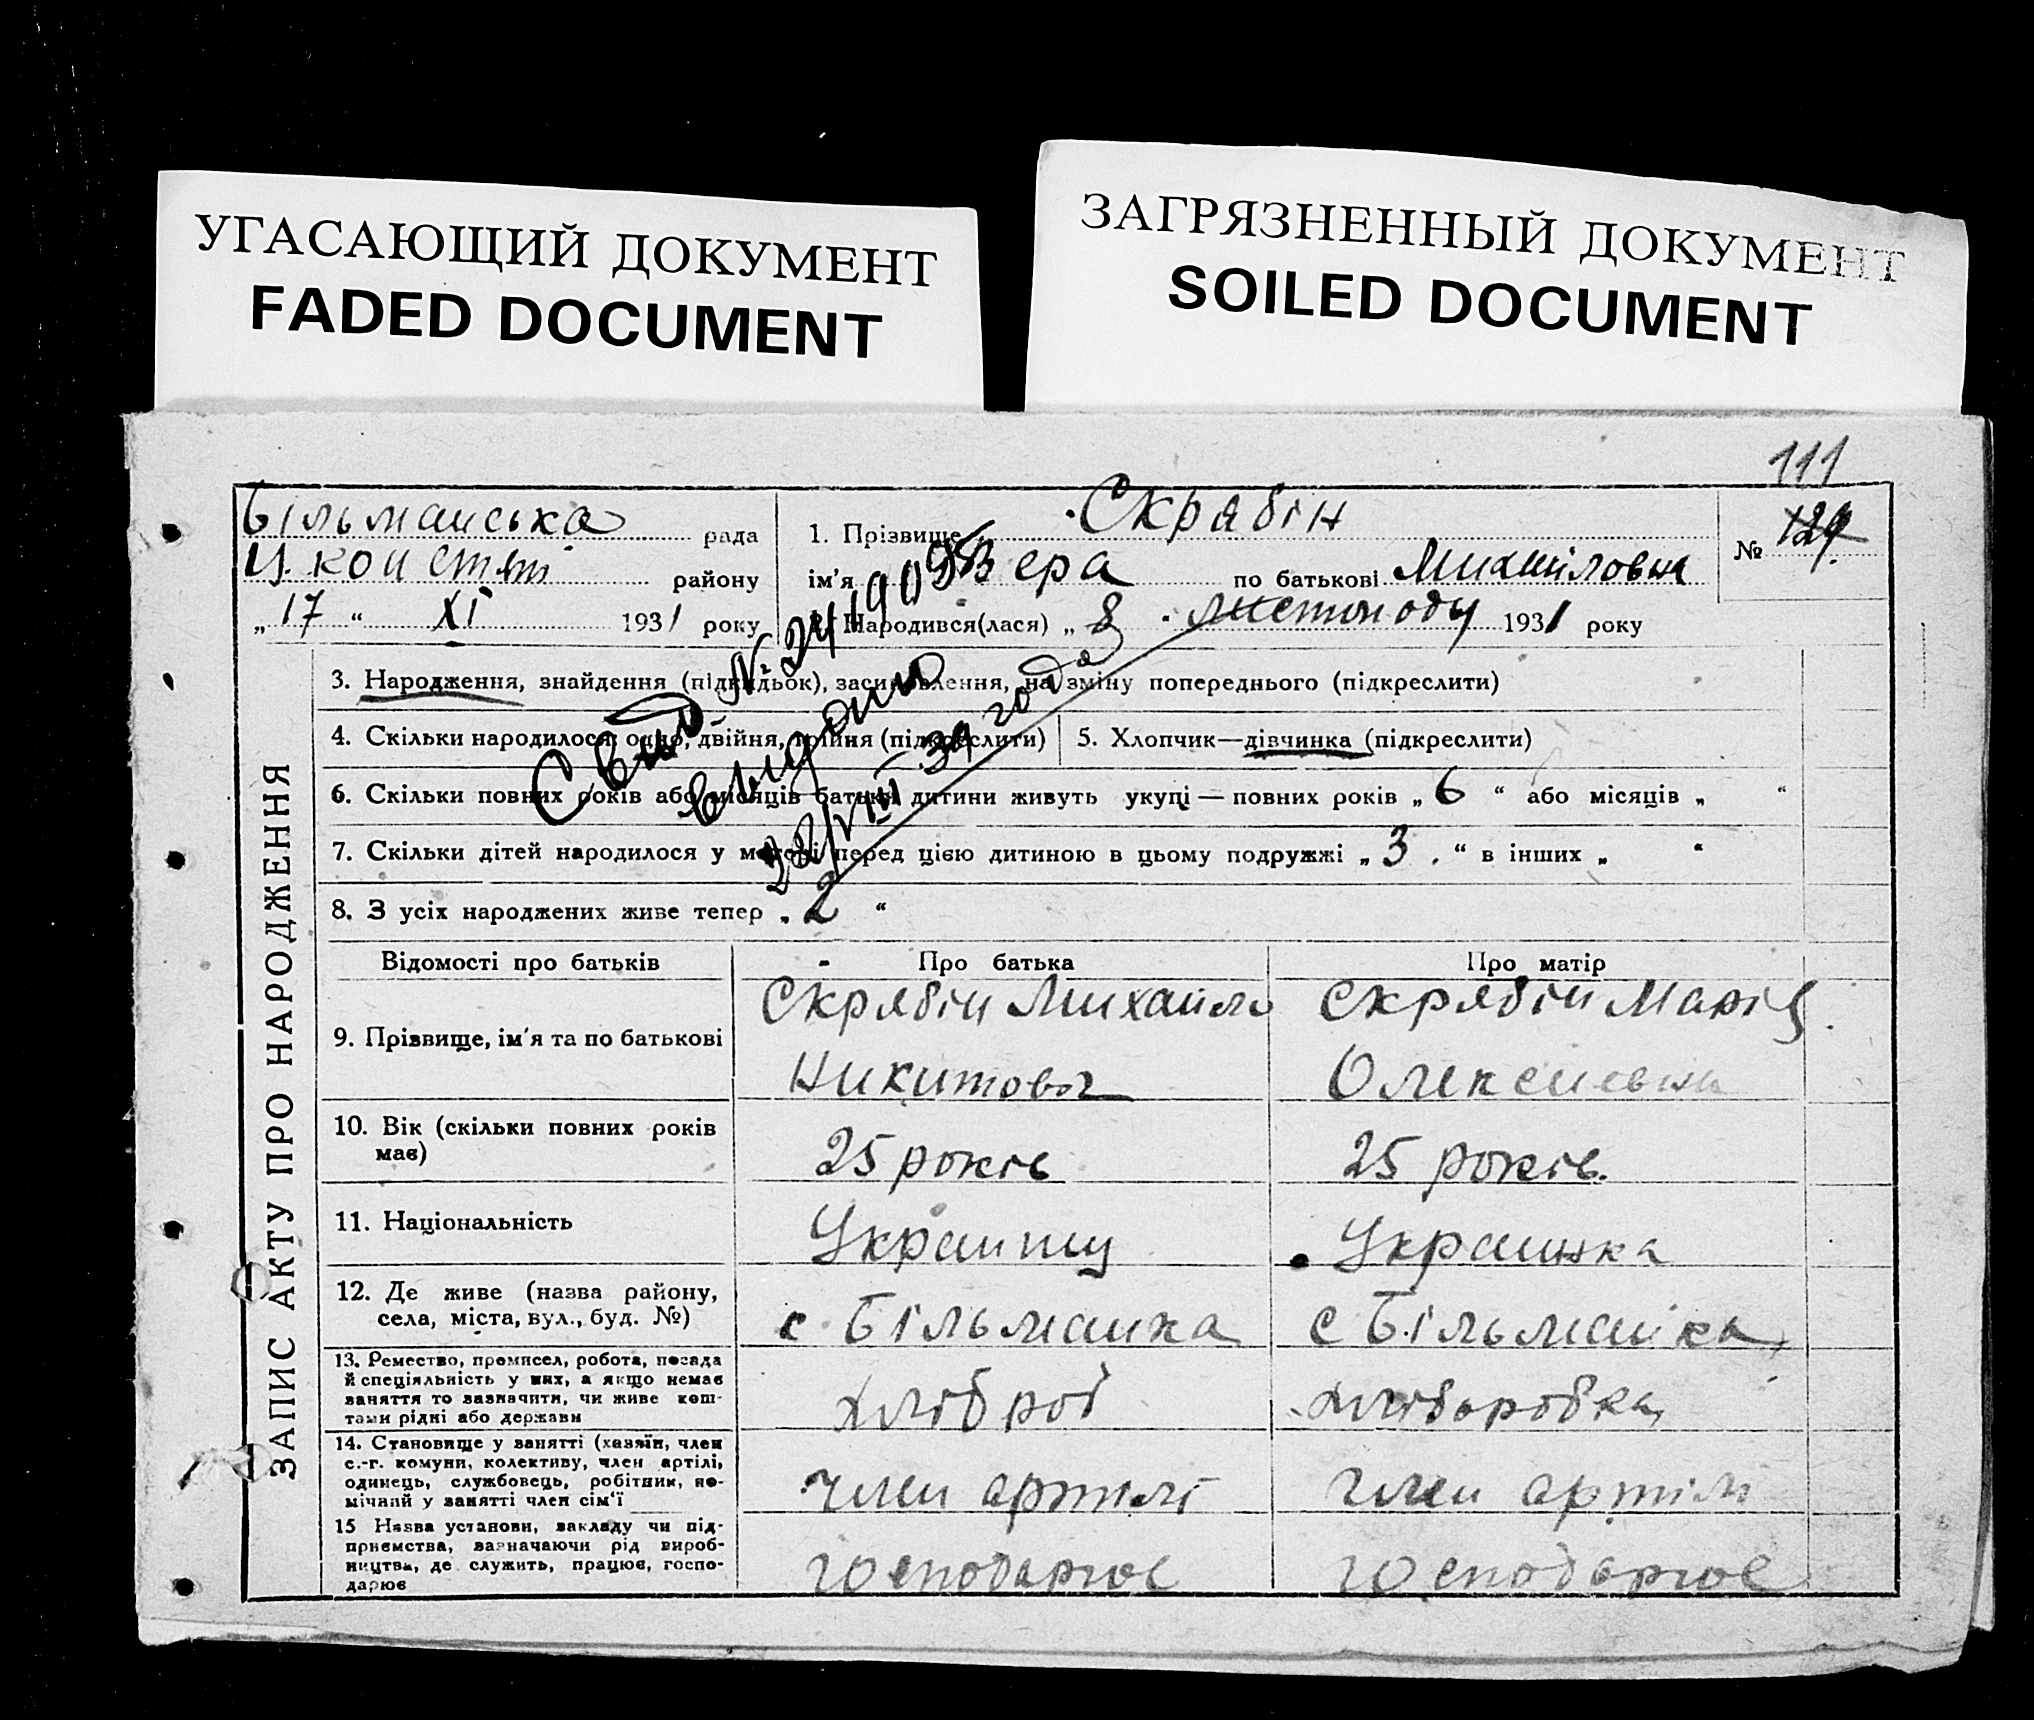 УГАСАЮЩИЙ ДОКУМЕНТ
FADED DOCUMENT
ЗАГРЯЗНЕННЫЙ ДОКУМЕНТ
SOILED DOCUMENT
111
Більманська рада
району
„17“ XI 1931 року
1. Прізвище Скрябін
ім'я Вера по батькові Михайловна
№ 124
2. Народився(лася) „8 листоподу 1931 року
ЗАПИС АКТУ ПРО НАРОДЖЕННЯ
3. Народження, знайдення (підкидьок), засиновлення, на зміну попереднього (підкреслити)
4. Скільки народилося: одно, двійня, трійня (підкреслити)
5. Хлопчик—дівчинка (підкреслити)
6. Скільки повних років або місяців батьки дитини живуть укупі — повних років „6“ або місяців „ “
7. Скільки дітей народилося у матері перед цією дитиною в цьому подружжі „3.“ в інших „ “
8. З усіх народжених живе тепер „2“
Свид №
выдано
22/VIII 39 года
Відомості про батьків
Про батька
Про матір
9. Прізвище, ім'я та по батькові
Скрябін Михайло
Никитович
Скрябін Марія
Олексиевна
10. Вік (скільки повних років
має)
25 років
25 років.
11. Національність
Украинц
Украинка
12. Де живе (назва району,
села, міста, вул., буд. №)
с Більманка
с Більманка,
13. Ремество, промисел, робота, посада
й спеціяльність у них, а якщо немає
заняття то зазначити, чи живе кош-
тами рідні або держави
хліброб
хліборобка,
14. Становище у занятті (хазяїн, член
с.-г. комуни, колективу, член артілі,
одинець, службовець, робітник, по-
мічний у занятті член сім'ї
член артілі
член артілі
15 Назва установи, закладу чи під-
приємства, зазначаючи рід вироб-
ництва, де служить, працює, госпо-
дарює
господарює
господарює